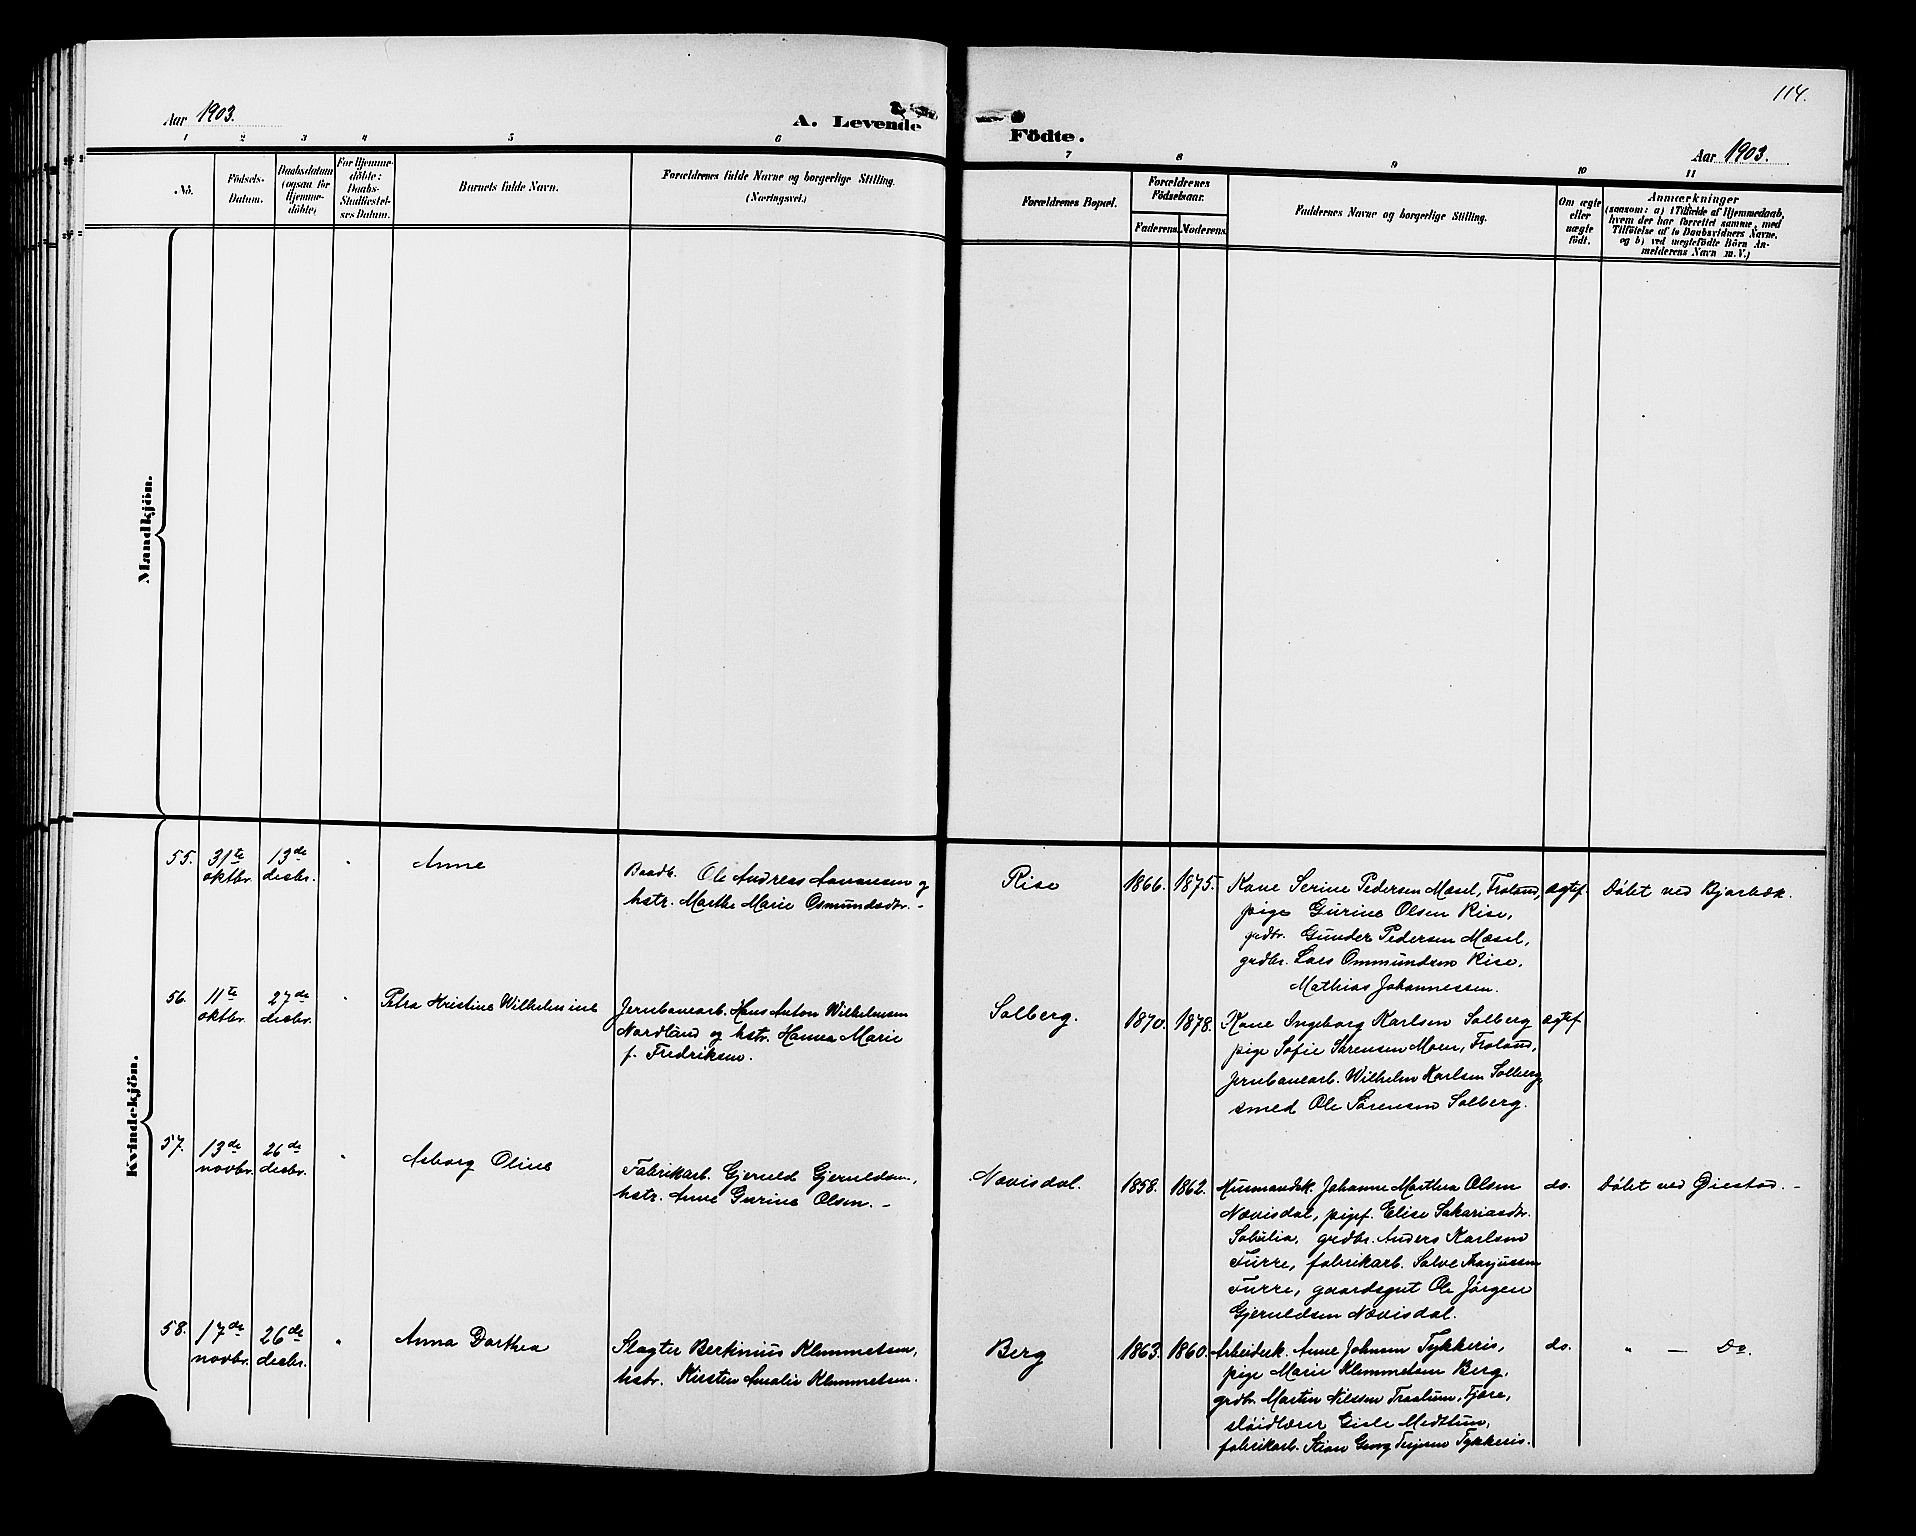 114.
Aar 1903.
A. Levende Födte.
Aar 1903.
1 2 3 4 5 6 7 8 9 10 11
No.
Födsels-
Datum.
Daabsdatum
(ogsaa for
Hjemme-
döbte)
For Hjemme-
döbte:
Daabs-
Stadfæstel-
ses Datum.
Barnets fulde Navn.
Forældrenes fulde Navne og borgerlige Stilling.
(Næringsvei.)
Forældrenes Bopæl.
Forældrenes
Födselsaar.
Faderens. Moderens.
Faddernes Navne og borgerlige Stilling.
Om ægte
eller
uægte
födt.
Anmærkninger
(saasom: a) i Tilfælde af Hjemmedaab,
hvem der har forrettet samme, med
Tilföielse af to Daabsvidners Navne,
og b) ved uegtefödte Börn An-
melderens Navn m. V.)
Mandkjön.
Kvindekjön.
55.
31te
oktbr.
13de
desbr.
"
Anne
Baadb. Ole Andreas Aanonsen og
hstr. Marthe Marie Osmundsdtr. -
Rise
1866.
1875.
Kone Serine Pedersen Mæsel, Froland,
pige Gurine Olsen Rise,
grdbr. Gunder Pedersen Mæsel,
grdbr. Lars Ommundsen Rise,
Mathias Johannessen.
ægtef.
Döbt ved Bjorbæk.
56.
11te
oktbr.
27de
desbr.
"
Petra Kristine Wilhelmine
Jernbanearb. Hans Anton Wilhelmsen
Nordland og hstr. Hanna Marie
f. Fredriksen.
Solberg.
1870.
1878.
Kone Ingeborg Karlsen Solberg
pige Sofie Sørensen Moen, Froland,
jernbanearb. Wilhelm Karlsen Solberg
smed Ole Sørensen Solberg.
ægtef
57.
13de
novbr.
26de
desbr.
"
Asborg Oline
Fabrikarb. Gjeruld Gjeruldsen,
hstr. Anne Gurine Olsen. -
Nævisdal.
1858.
1862.
Husmandsk. Johanne Marthea Olsen
Nævisdal, pigef. Elise Sakariasdtr.
grdbr. Anders Karlsen
Furre, fabrikarb. Salve
Furre, gaardsgut Ole Jørgen
Gjeruldsen Nævisdal.
do.
Döbt ved Øiestad. -
58.
17de
novbr.
26de
desbr.
"
Anna Dorthea
Slagter Bertinius Klemmetsen,
hstr. Kirsten Amalie Klemmetsen.
Berg
1863.
1860.
Arbeidersk. Anne Johnsen Tykkeris,
pige Marie Klemmetsen Berg,
grdbr. Martin Nilssen Traalum, Fjære,
sløidlærer Gisle Medtun,
fabrikarb. Stian Georg Terjesen Tykkeris.
do.
" - Do.